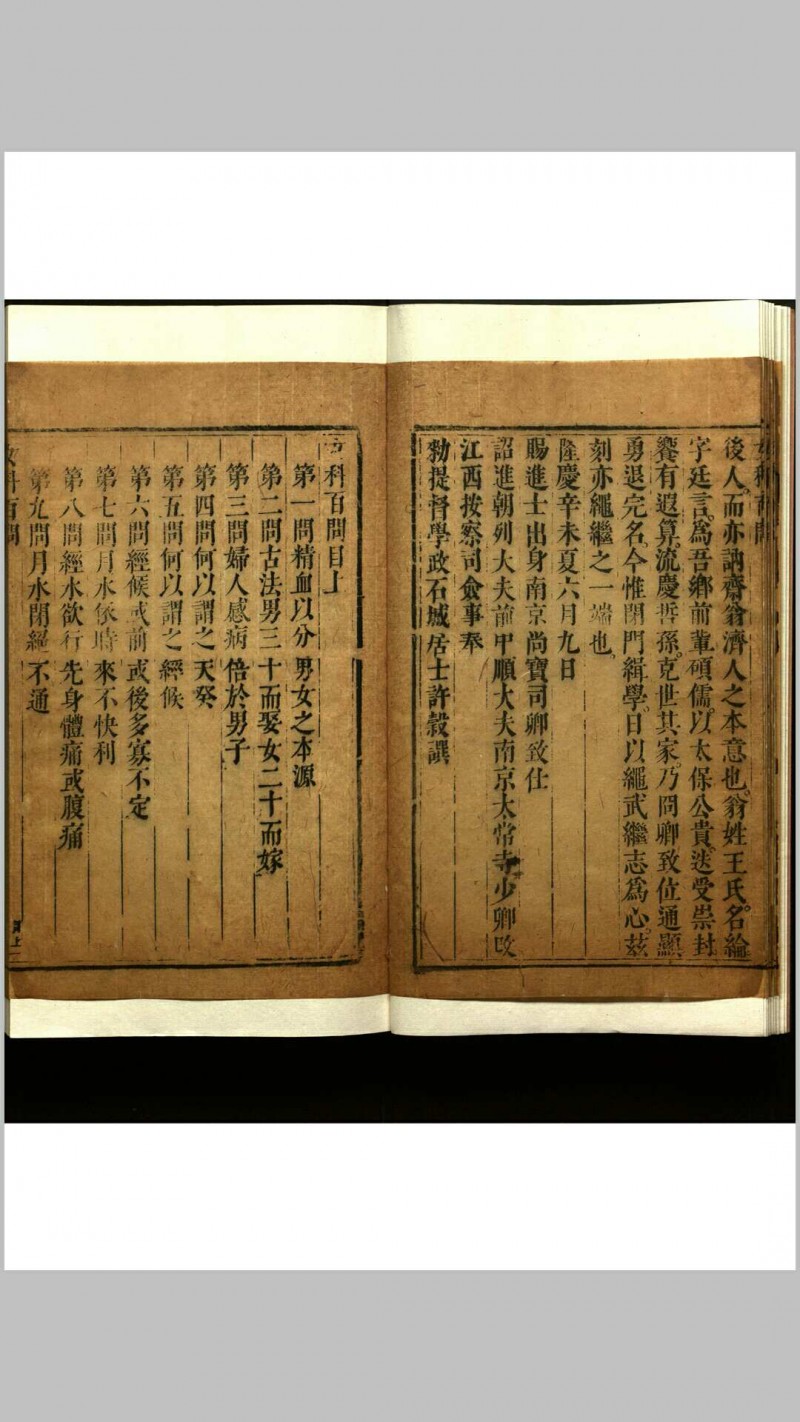 後人而亦訥齋翁濟人之本意也翁姓王氏名綸
字廷言爲吾鄉前輩碩儒以太保公貴迭受崇封
饗有遐算流慶哲孫克世其家乃冏卿致位通顯
勇退完名今惟閉門緝學日以繩武繼志爲心茲
刻亦繩繼之一端也
隆慶辛未夏六月九日
賜進士出身南京尚寶司卿致仕
詔進朝列大夫前中順大夫南京太常寺少卿改
江西按察司僉事奉
勑提督學政石城居士許穀譔
女科百問目上
第一問精血以分男女之本源
第二問古法男三十而娶女二十而嫁
第三問婦人感病倍於男子
第四問何以謂之天癸
第五問何以謂之經候
第六問經候或前或後多寡不定
第七問月水依時來不快利
第八問經水欲行先身體痛或腹痛
第九問月水閉絕不通
女科百問